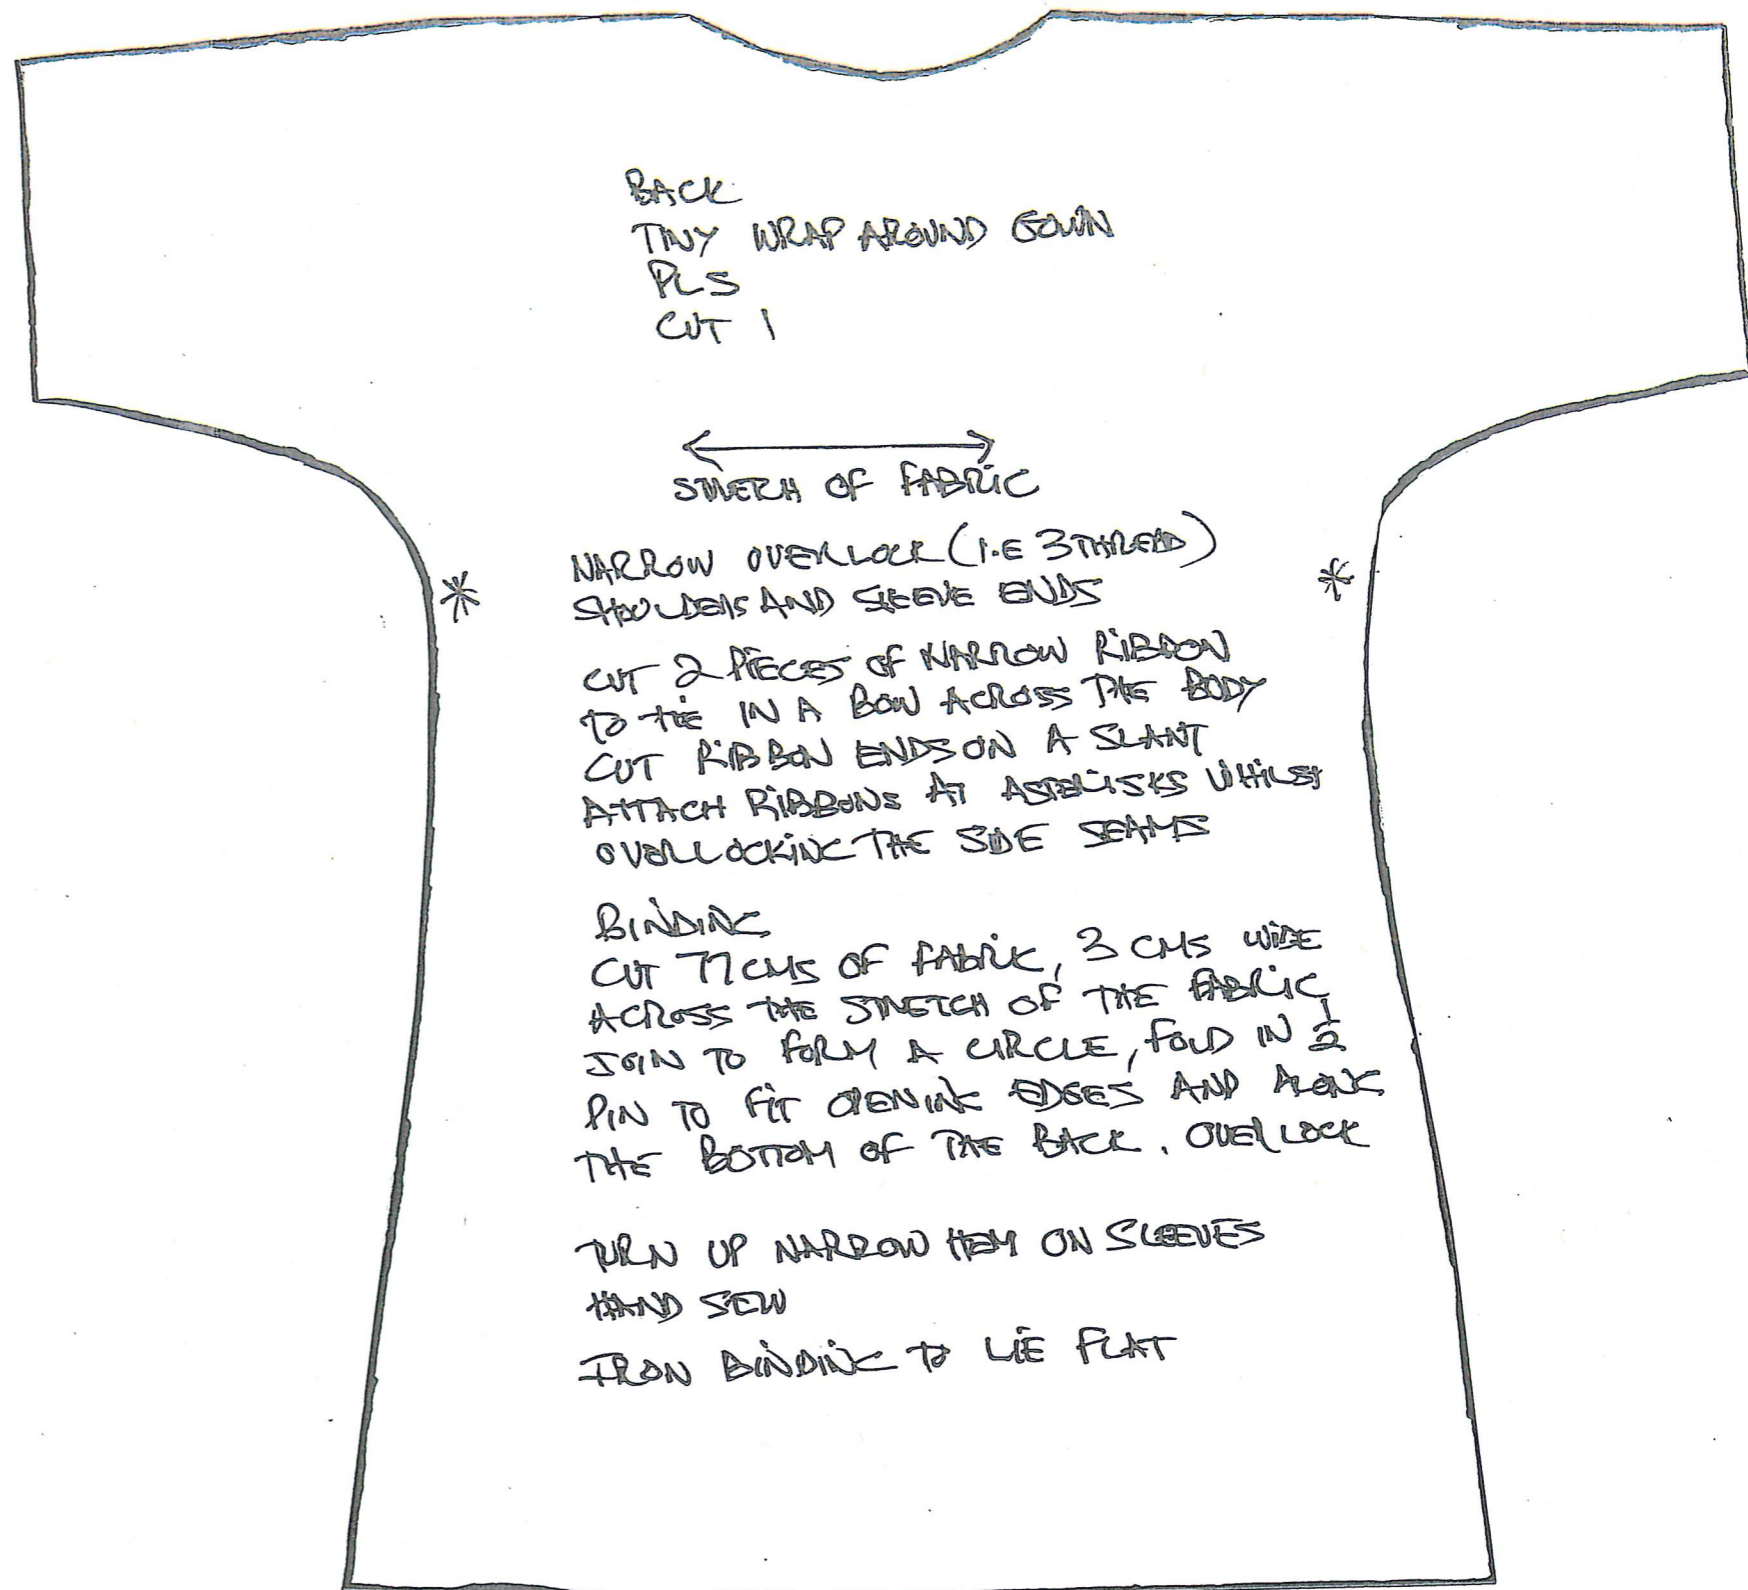 BACK
TINY WRAP AROUND GOWN
PLS
CUT 1
STRETCH OF FABRIC
NARROW OVERLOCK (I.E 3 THREAD)
* *
SHOULDERS AND SLEEVE ENDS
CUT 2 PIECES OF NARROW RIBBON
TO TIE IN A BOW ACROSS THE BODY
CUT RIBBON ENDS ON A SLANT
ATTACH RIBBONS AT ASTERISKS WHILST
OVERLOCKING THE SIDE SEAMS
BINDING
CUT 77 CMS OF FABRIC, 3 CMS WIDE
ACROSS THE STRETCH OF THE FABRIC,
JOIN TO FORM A CIRCLE, FOLD IN ½
PIN TO FIT OPENING EDGES AND ALONG
THE BOTTOM OF THE BACK. OVERLOCK
TURN UP NARROW HEM ON SLEEVES
HAND SEW
IRON BINDING TO LIE FLAT